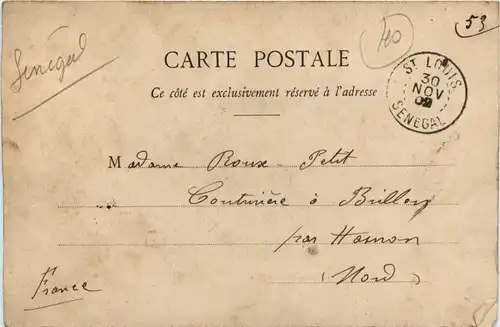 Sénégal
40
53
CARTE POSTALE
Ce côté est exclusivement réservé à l'adresse
ST LOUIS
30
NOV
02
SENEGAL
Madame Roux-Petit
Couturière à Brillon
par Hasnon
(Nord)
France